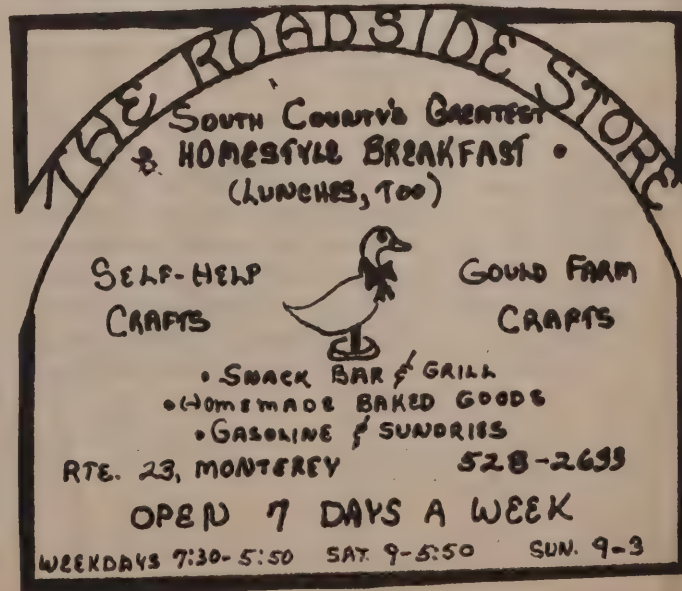 THE ROADSIDE STORE
SOUTH COUNTY'S GREATEST
& HOMESTYLE BREAKFAST •
(LUNCHES, TOO)
SELF-HELP
CRAFTS
GOULD FARM
CRAFTS
• SNACK BAR & GRILL
• HOMEMADE BAKED GOODS
• GASOLINE & SUNDRIES
RTE. 23, MONTEREY 528-2633
OPEN 7 DAYS A WEEK
WEEKDAYS 7:30-5:50 SAT. 9-5:50 SUN. 9-3